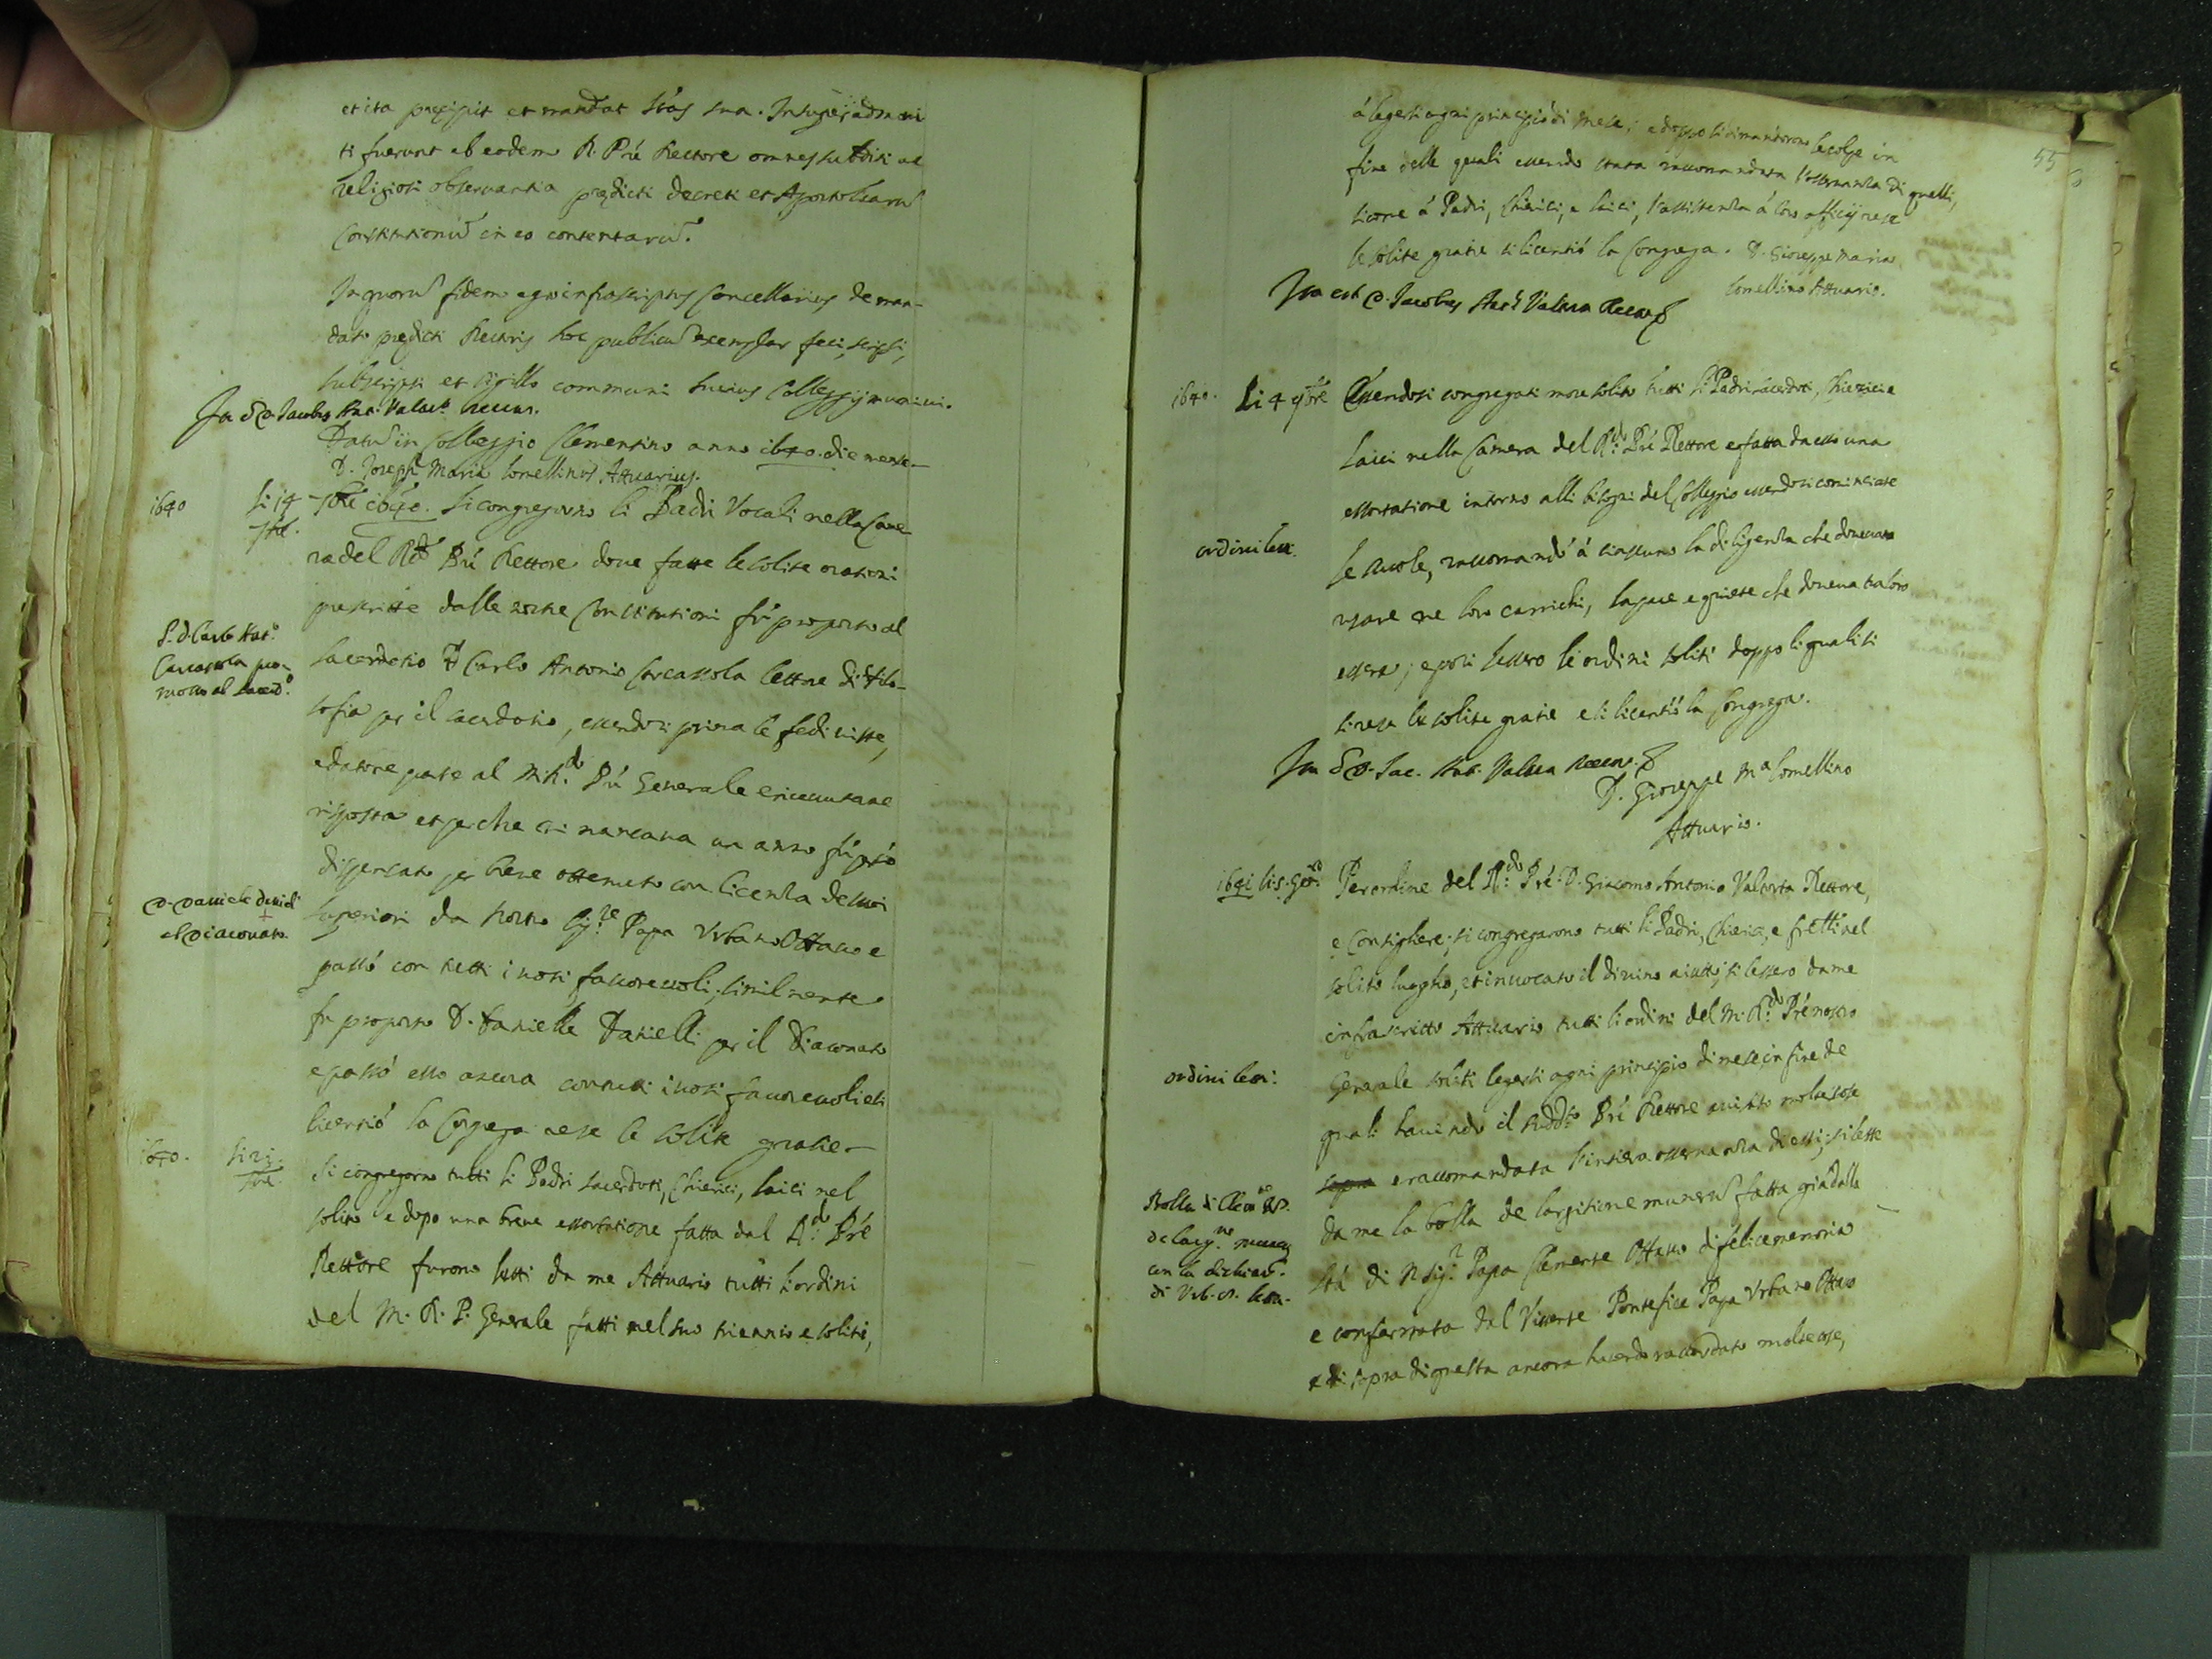 et ita precipit et mandat stas sua. Insuper admoni
ti fuerunt ab eodem R. Prê Rectore omnes subditi ac
religiosi observantia predicti decreti et Apostolicarū
Constitutionū in eo contentarū.
In quorū fidem ego infrascriptus Cancellarius de man-
dato predicti Rectoris hoc publicū exemplar feci, scripsi,
subscripsi et sigillo communi huius Collegij munivi.
Ita est D. Jacobus Ant. Valtort. Rector.
Datū in Collegio Clementino anno 1640. die mense
D. Joseph Maria Lomellinus Attuarius.
1640 li 14 7bre
7bre 1640. Si congregorno li Padri Vocali nella Came
ra del Rdo Prê Rettore doue fatte le solite orationi
prescritte dalle nostre Constitutioni fù proposto al
sacerdotio D Carlo Antonio Carcassola lettore di filo-
sofia per il sacerdotio, essendosi prima le fedi viste,
e datone parte al M.R.do Prê Generale e riceuutane
risposta et perche li mancaua un anno fù però
dispensato per breve ottenuto con licenza de suoi
superiori da nostro Sig.re Papa Vrbano Ottauo e
passò con tutti i uoti fauoreuoli, similmente
fu proposto D. Danielle Danielli per il Diaconato
e passò esso ancora con tutti i uoti fauoreuoli e si
licentiò la Congrega rese le solite gratie
P. D. Carlo Ant.o
Carcassola pro-
mosso al sacerd.o
D. Daniele Danieli
al Diaconato.
1640. li 21. 7bre
Si congregorno tutti li Padri sacerdoti, Chierici, laici nel
solito e dopo una breue essortatione fatta dal R.do Prê
Rettore furono letti da me Attuario tutti li ordini
del M. R. P. Generale fatti nel suo triennio e soliti,
55
à legersi ogni principio di mese; e doppo si dimandorno le colpe in
fine delle quali essendo stata raccomandata l'osseruanza di quelli,
sicome à Padri, Chierici, e laici, l'assistenza à loro officij rese
le solite gratie si licentiò la Congrega. D. Gioseppe Maria
Lomellino Attuario.
Ita est D. Jacobus Ant. Valtorta Rector
1640. Li 4 9bre Essendosi congregati more solito tutti li Padri sacerdoti, Chierici e
laici nella Camera del R.do Prê Rettore e fatta da esso una
essortatione intorno alli bisogni del Collegio essendosi cominciate
le scuole, raccomandò à ciascuno la diligenza che doueuano
usare ne loro carrichi, la pace e quiete che doueua tra loro
essere; e poi lessero li ordini soliti doppo li quali si
si rese le solite gratie e si licentiò la Congrega.
ordini letti.
Ita est D. Jac. Ant. Valtorta Rector
D. Gioseppe M.a Lomellino
Attuario.
1641 li 5. Gen.o Per ordine del R.do Prê D. Giacomo Antonio Valtorta Rettore,
e Consigliere; si congregarono tutti li Padri, Chierici, e fratelli nel
solito luogho, et inuocato il diuino aiutto, si lessero da me
infrascritto Attuario tutti li ordini del M.R.do Prê nostro
Generale soliti legersi ogni principio di mese in fine de
quali hauendo il sudd.o Prê Rettore auisato molte cose
sopra e raccomandata l'intiera osseruanza di essi; si lesse
da me la bolla de largitione munerū fatta già dalla
Stà di N Sig.r Papa Clemente Ottauo di felice memoria
e confermata dal Viuente Pontefice Papa Vrbano Ottauo
e di sopra di questa ancora hauendo raccordato molte cose,
ordini letti.
Bolla di Clem. 8o.
de larg.ne muner.
con la dichiar.
di Vrb. 8. letta.